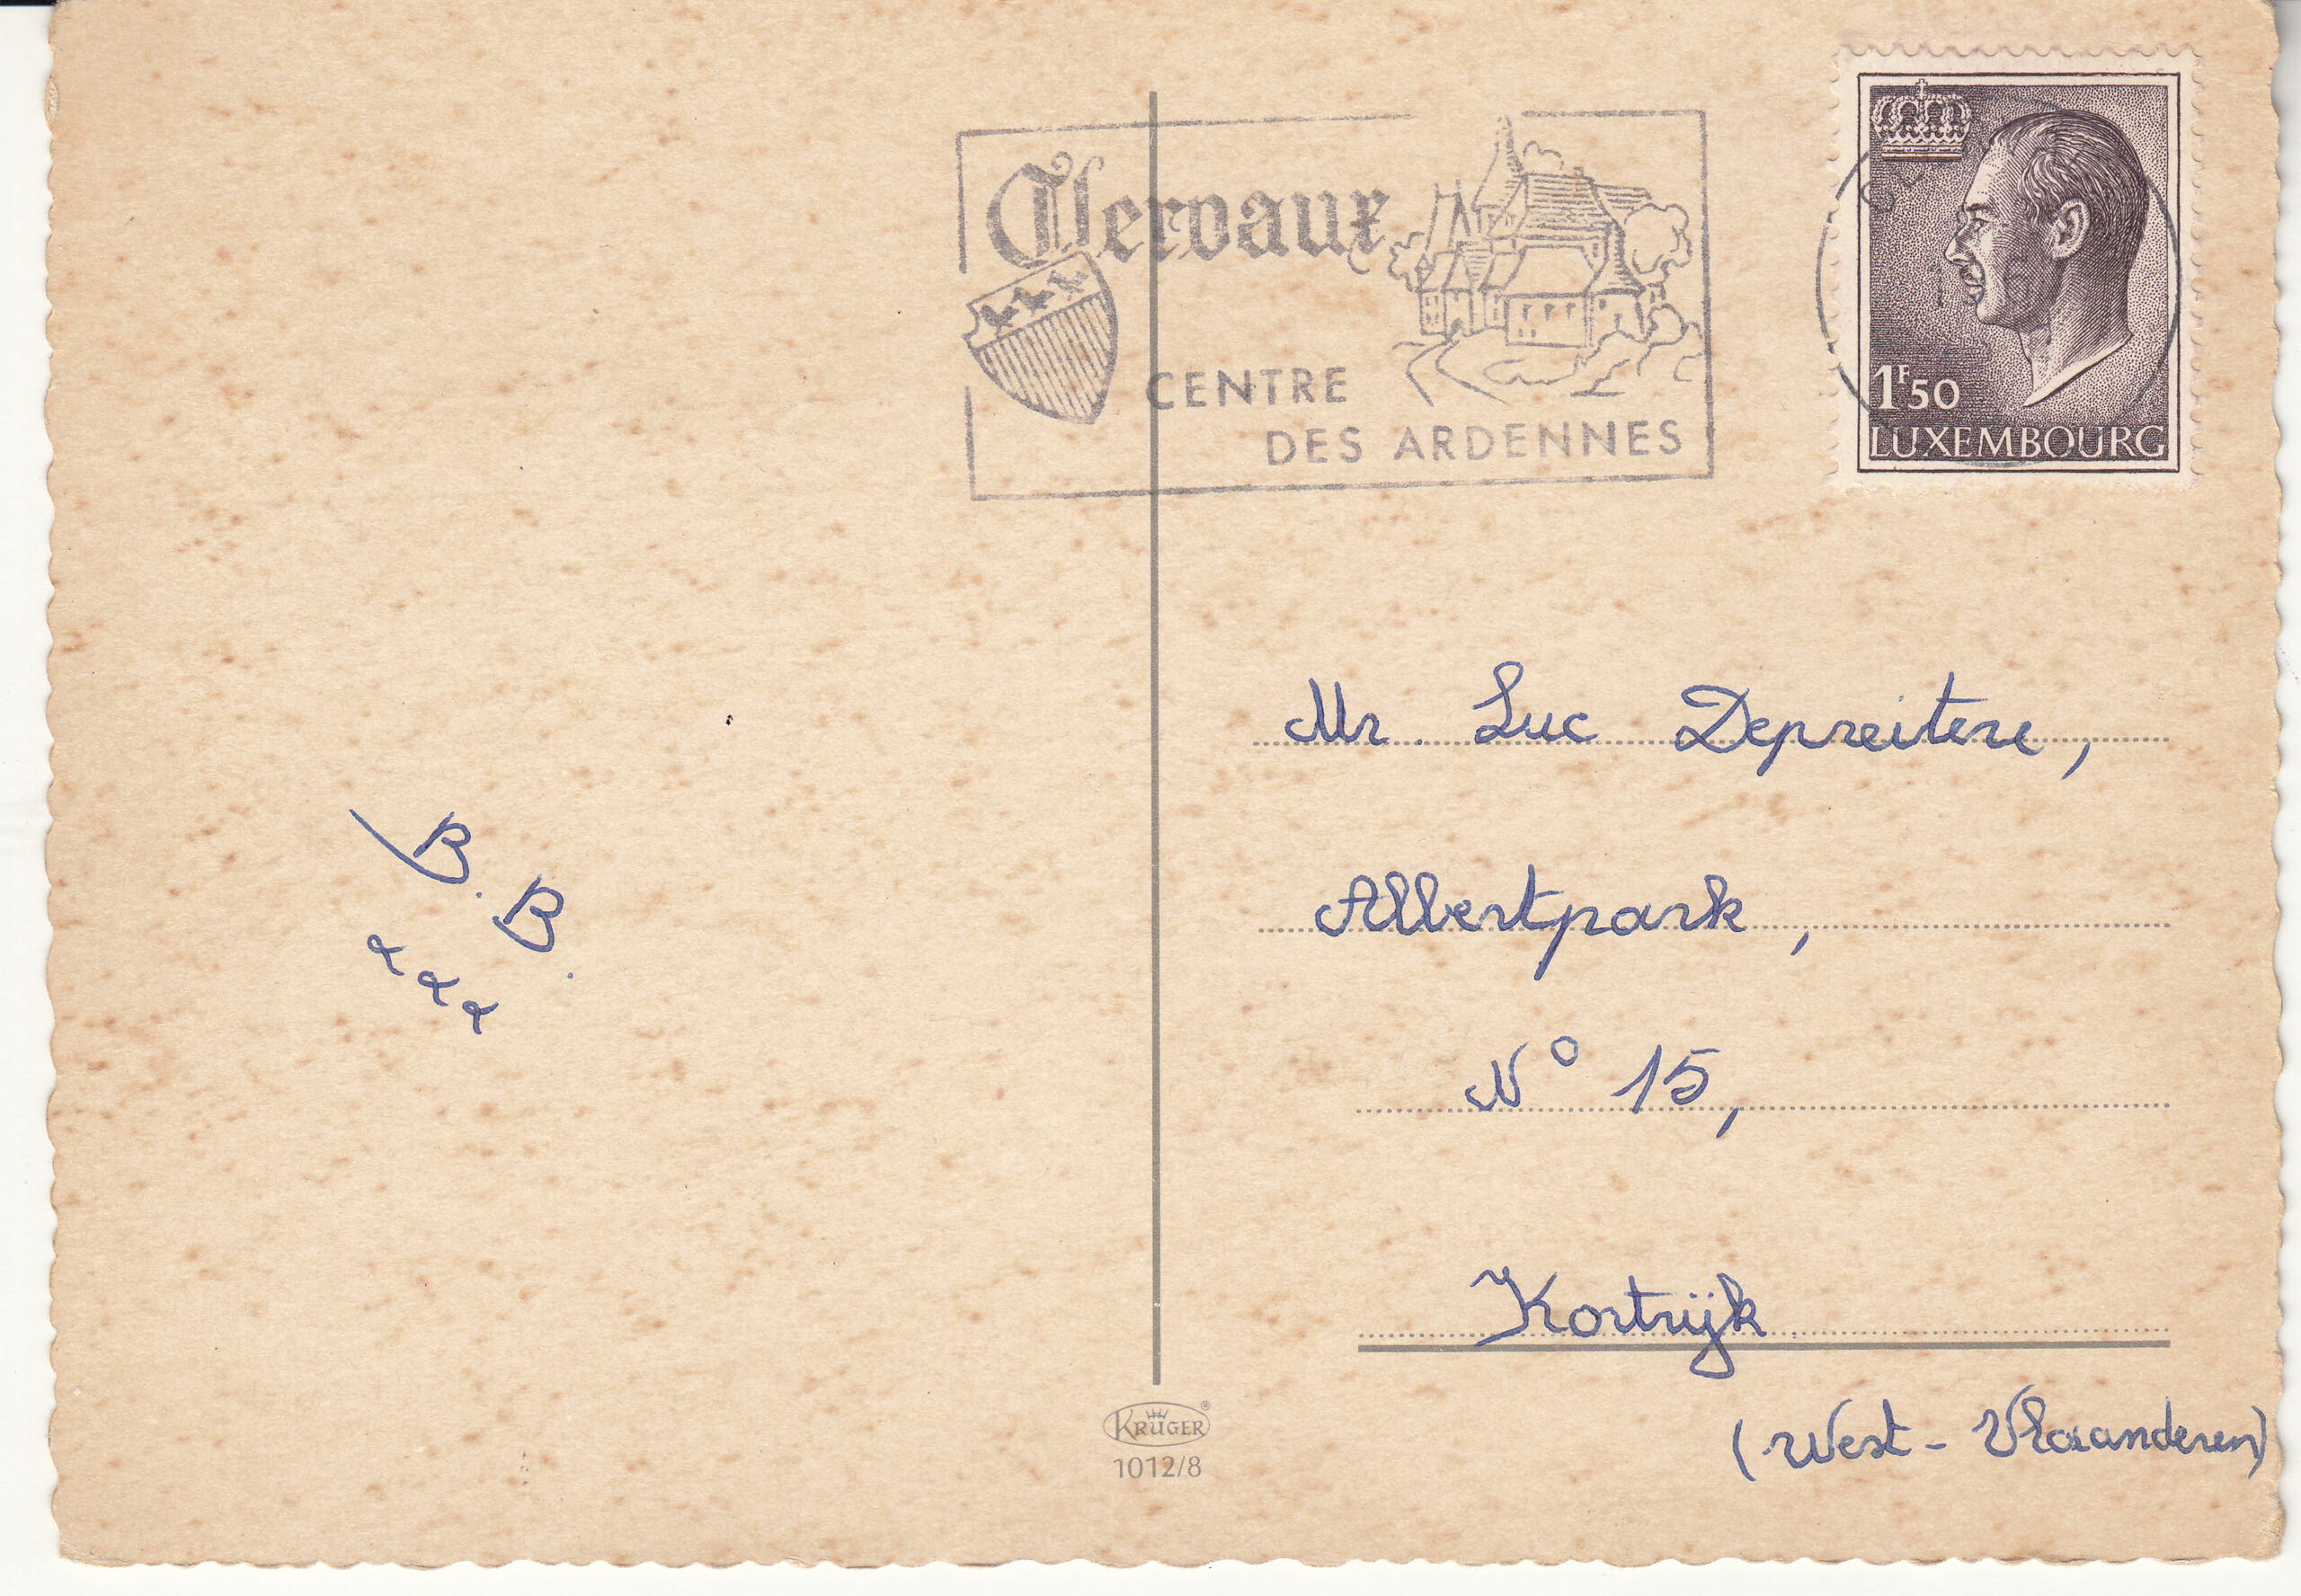 Clervaux
CENTRE
DES ARDENNES
1F50
LUXEMBOURG
Mr. Luc Depreitere,
Albertpark,
N° 15,
Kortrijk
(West-Vlaanderen)
B. B.
xxx
KRÜGER®
1012/8